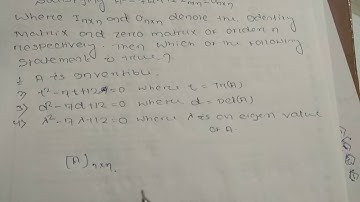 where Inxn and Onxn denote the identity
matrix and zero matrix of order n
respectively. Then which of the following
statement is true?
1 A is invertible.
2) t² - 7t + 12 = 0 where t = Tr(A)
3) d² - 7d + 12 = 0 where d = Det(A)
4) λ² - 7λ + 12 = 0 where λ is an eigen value
of A.
[A]nxn.